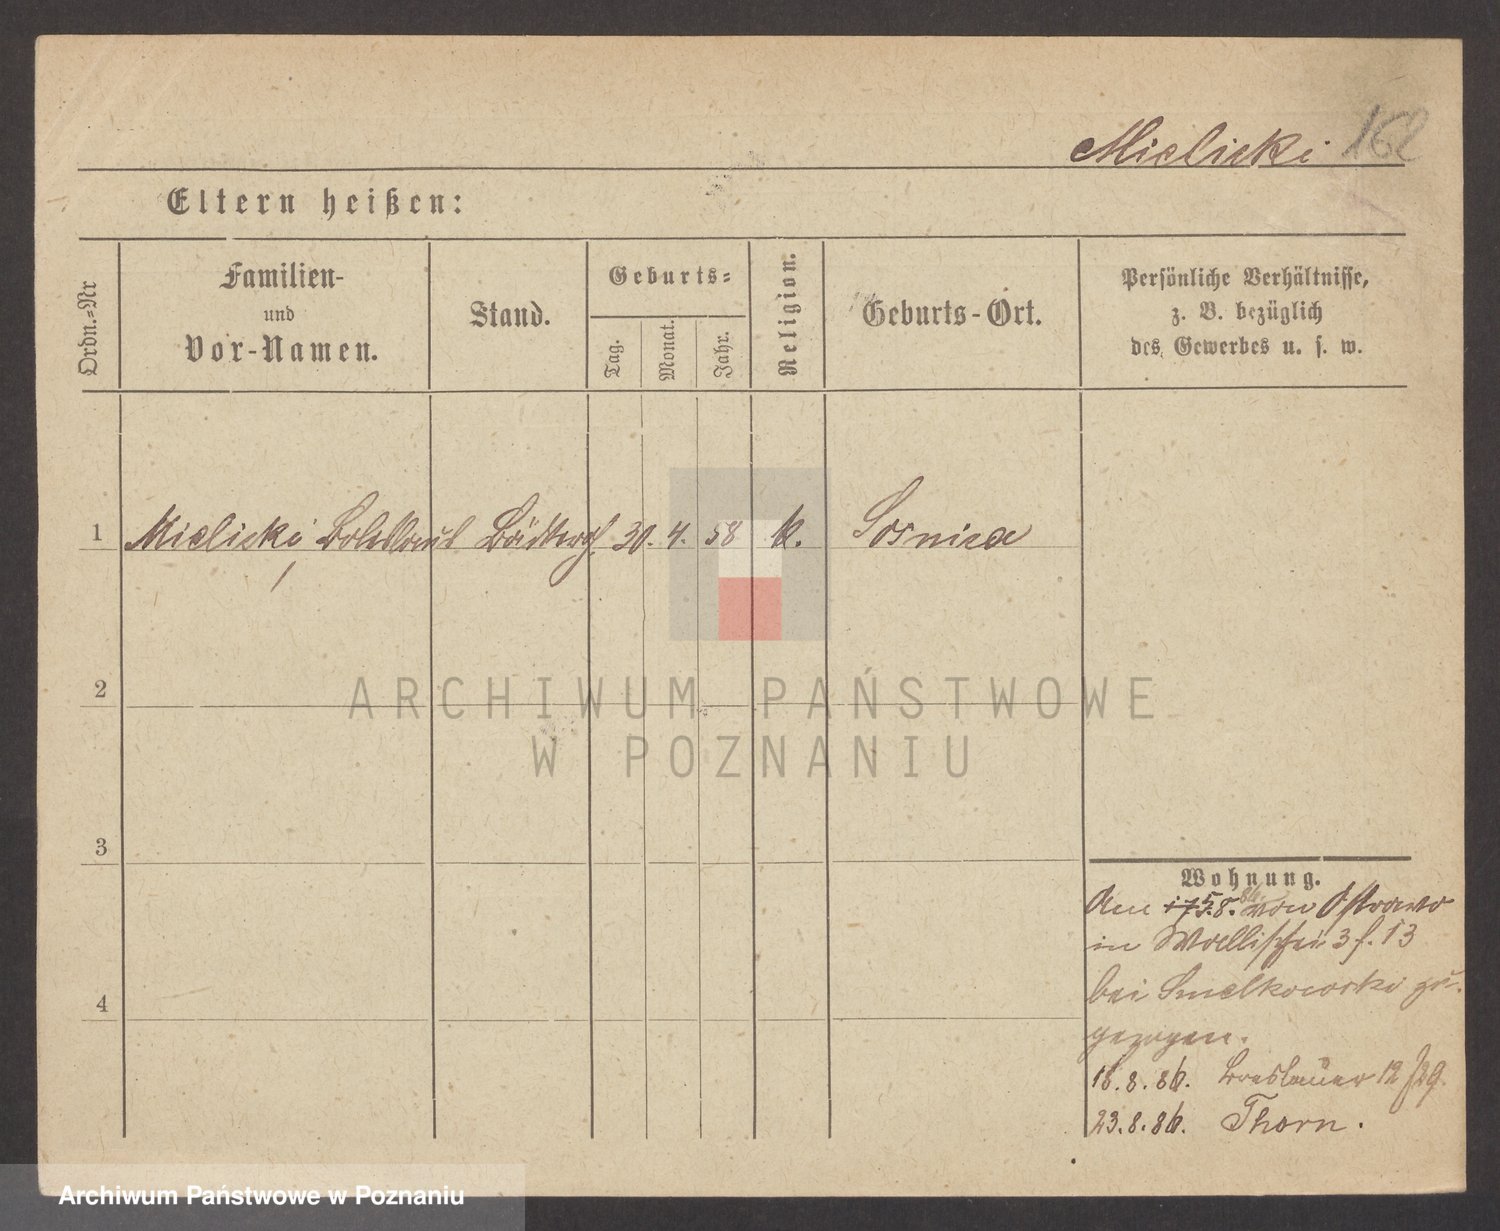 Mielicki 162
Eltern heißen:
Ordn.=Nr
Familien-
und
Vor-Namen.
Stand.
Geburts=
Tag.
Monat.
Jahr.
Religion.
Geburts-Ort.
Persönliche Verhältnisse,
z. B. bezüglich
des Gewerbes u. s. w.
1 Mielicki, Boleslaus 30. 4. 58 k. Sosnica
2
ARCHIWUM PAŃSTWOWE
W POZNANIU
3
Wohnung.
Am 8. 86. von Ostrowo
in Wallischei 3 f. 13
bei Smelkowski zu-
4
gezogen.
18. 8. 86. Breslauer 12 f 29.
23. 8. 86. Thorn.
Archiwum Państwowe w Poznaniu